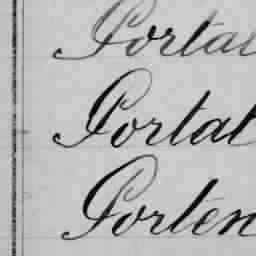 Portal
Portal
Porten